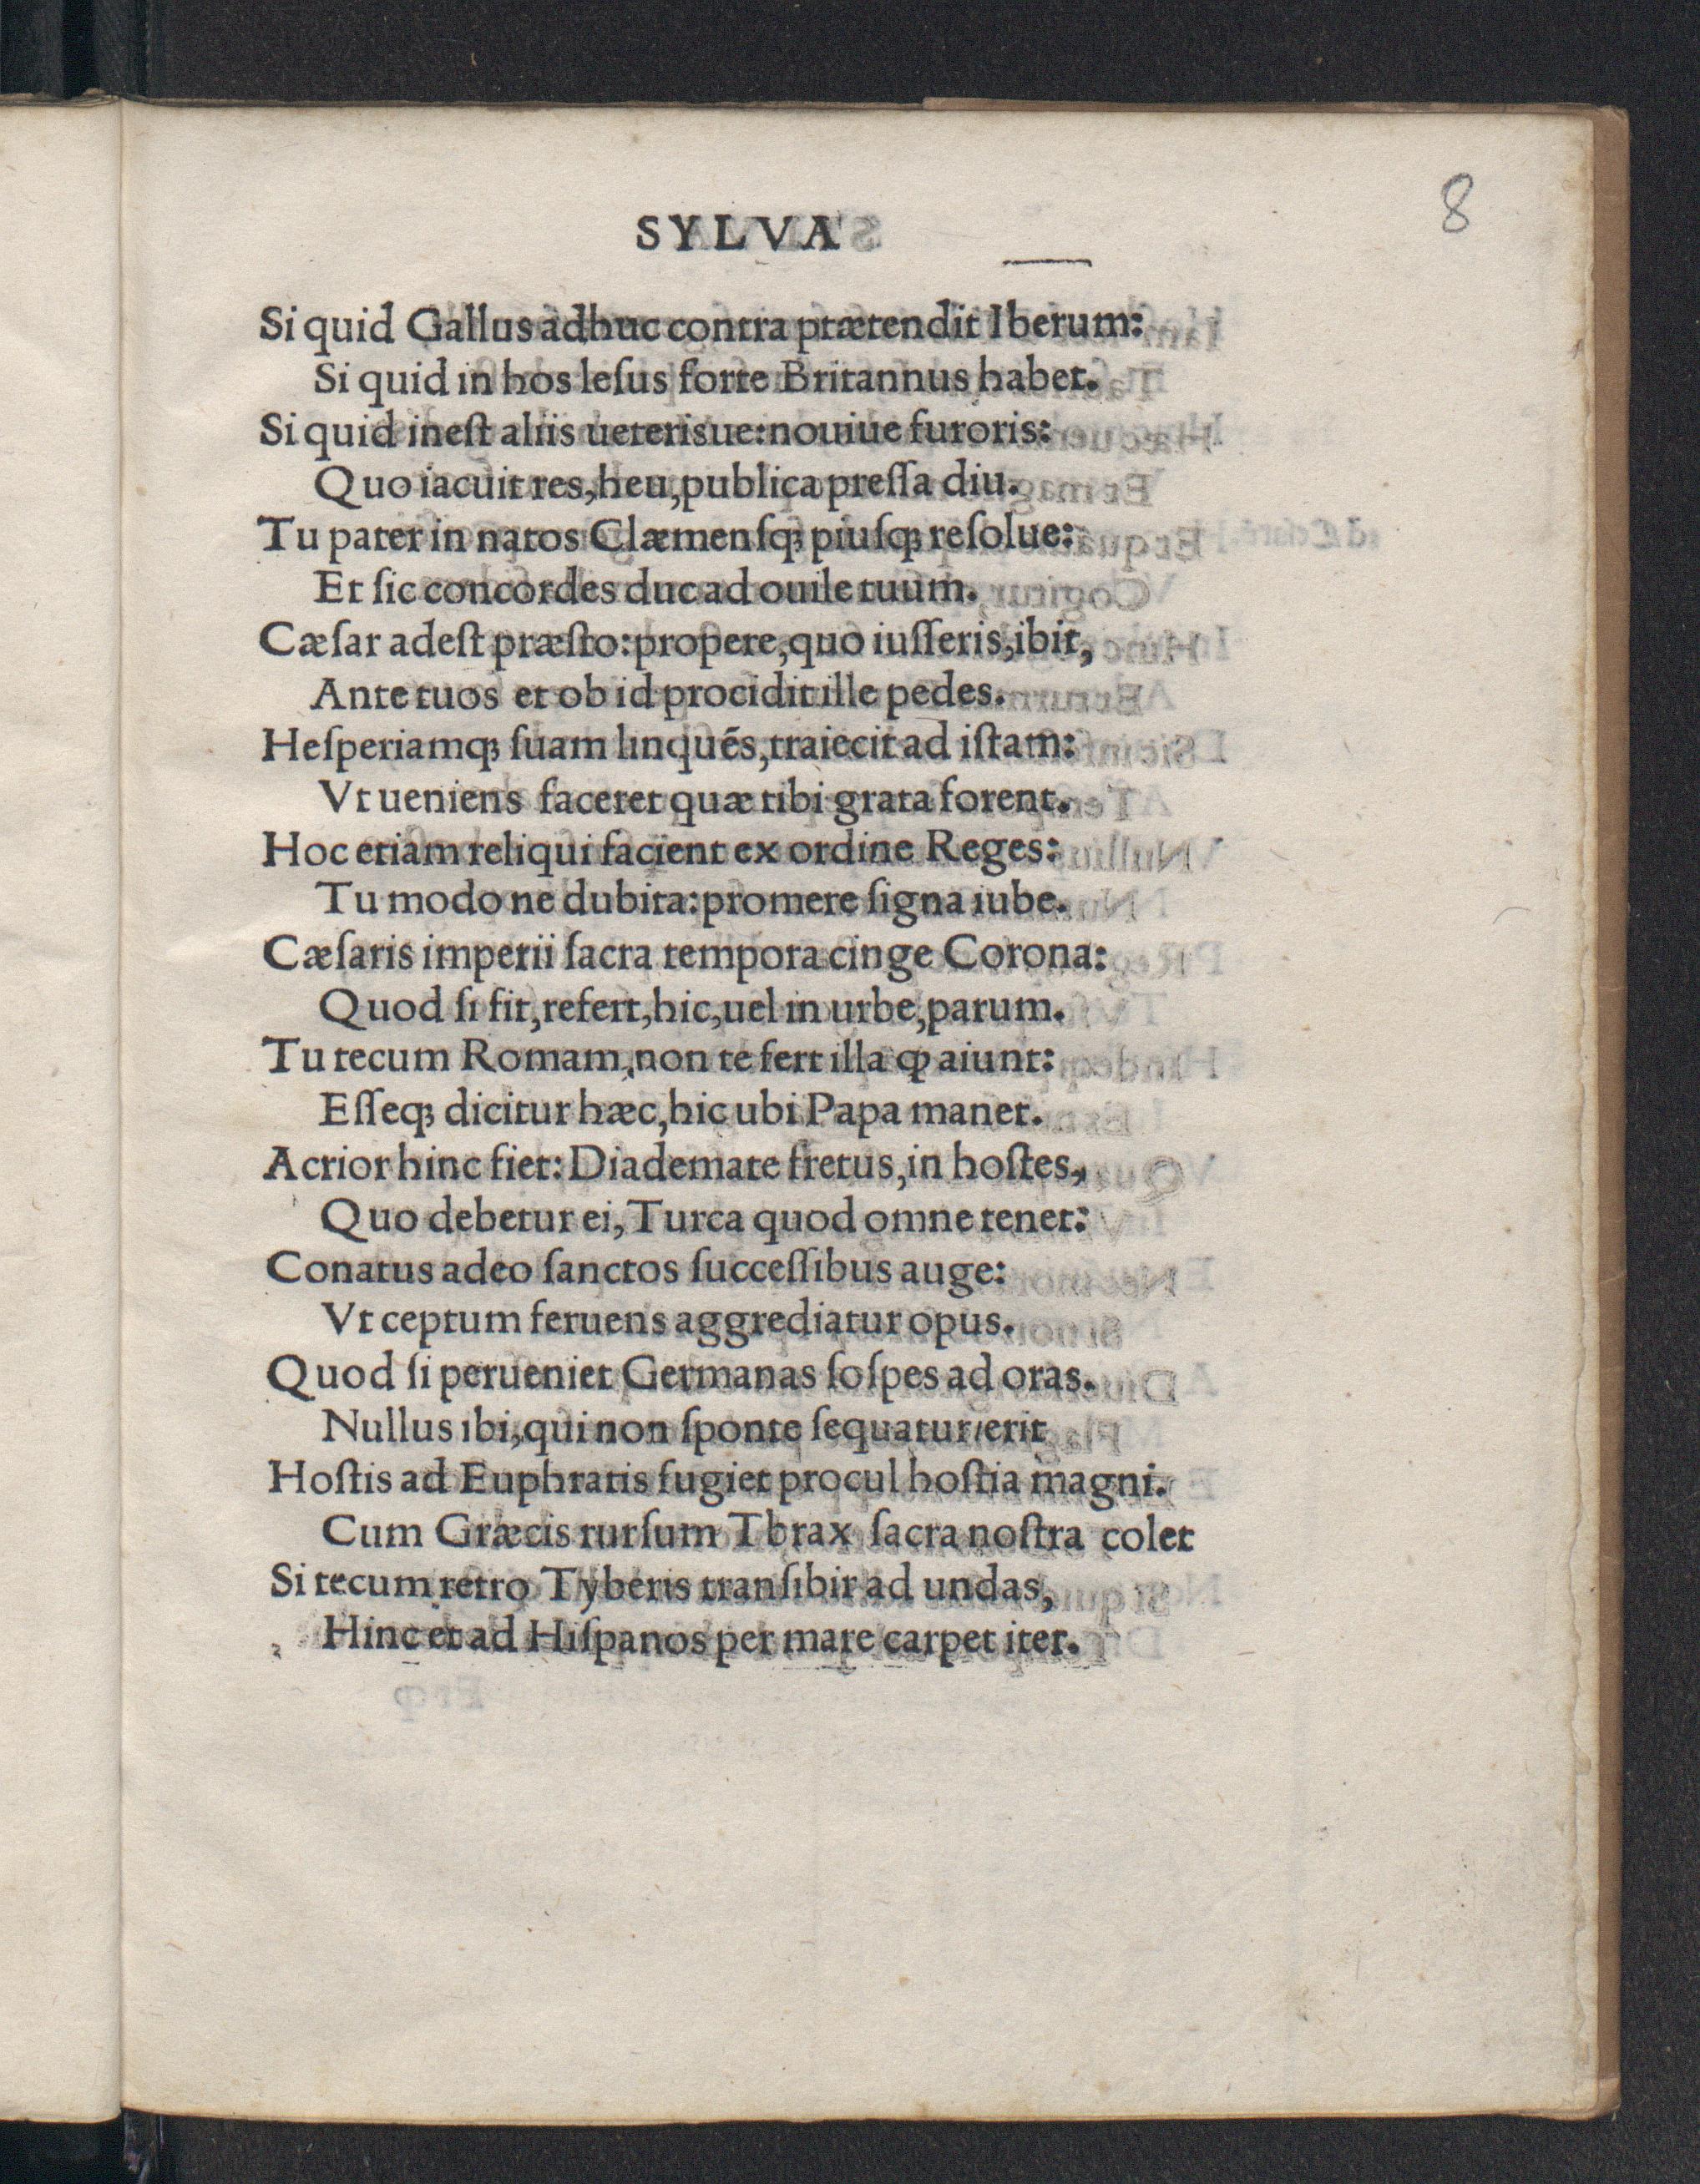 8
SYLVA
Si quid Gallus adhuc contra prætendit Iberum:
Si quid in hos leſus forte Britannus habet.
Si quid ineſt aliis ueterisue:nouiue furoris:
Quo iacuit res,heu,publica preſſa diu.
Tu pater in natos Clæmenſqꝫ piuſqꝫ reſolue:
Et ſic concordes duc ad ouile tuum.
Cæſar adeſt præſto:propere,quo iuſſeris,ibit,
Ante tuos et ob id procidit ille pedes.
Heſperiamqꝫ ſuam linqués,traiecit ad iſtam:
Vt ueniens faceret quæ tibi grata forent.
Hoc etiam reliqui facient ex ordine Reges:
Tu modo ne dubita:promere ſigna iube.
Cæſaris imperii ſacra tempora cinge Corona:
Quod ſi fit,refert,hic,uel in urbe,parum.
Tu tecum Romam,non te fert illa ꝙ aiunt:
Eſſeqꝫ dicitur hæc,hic ubi Papa manet.
Acrior hinc fiet:Diademate fretus,in hoſtes,
Quo debetur ei,Turca quod omne tenet:
Conatus adeo ſanctos ſucceſſibus auge:
Vt ceptum feruens aggrediatur opus.
Quod ſi perueniet Germanas ſoſpes ad oras.
Nullus ibi,qui non ſponte ſequatur/erit
Hoſtis ad Euphratis fugiet procul hoſtia magni.
Cum Græcis rurſum Tbrax ſacra noſtra colet
Si tecum retro Tyberis tranſibir ad undas,
Hinc et ad Hiſpanos per mare carpet iter.